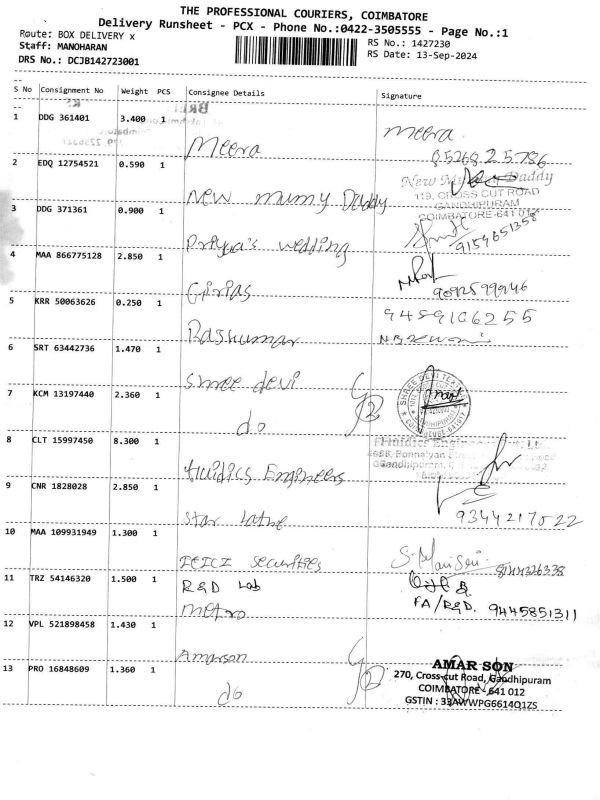 THE PROFESSIONAL COURIERS, COIMBATORE
Delivery Runsheet - PCX - Phone No.:0422-3505555 - Page No.:1
Route: BOX DELIVERY x
RS No.: 1427230
Staff: MANOHARAN
RS Date: 13-Sep-2024
DRS No.: DCJB142723001
S No Consignment No Weight PCS Consignee Details Signature
1 DDG 361401 3.400 1 Meera Meera.
85268 25786
2 EDQ 12754521 0.590 1 New mumy Daddy
New Daddy
119, CROSS CUT ROAD
GANDHIPURAM
COIMBATORE-641 012
3 DDG 371361 0.900 1 Priyua's wedding
9154651358
4 MAA 866775128 2.850 1 Girias
9092599946
5 KRR 50063626 0.250 1 Raskumar 9489106255
6 SRT 63442736 1.470 1 Shree devi
SHREE DEVI TEXTILE
7 KCM 13197440 2.360 1 do 2
8 CLT 15997450 8.300 1 fluidics Engineers
Fluidics Engineers
Gandhipuram,
9 CNR 1828028 2.850 1 Star Lathe 9344217022
10 MAA 109931949 1.300 1 ICICI securities
8144326338
11 TRZ 54146320 1.500 1 R&D Lab
metro
FA/R&D. 9445851311
12 VPL 521898458 1.430 1 Amarson
13 PRO 16848609 1.360 1 do 2
AMAR SON
270, Cross-cut Road, Gandhipuram
COIMBATORE - 641 012
GSTIN : 33AWWPG6614Q1ZS